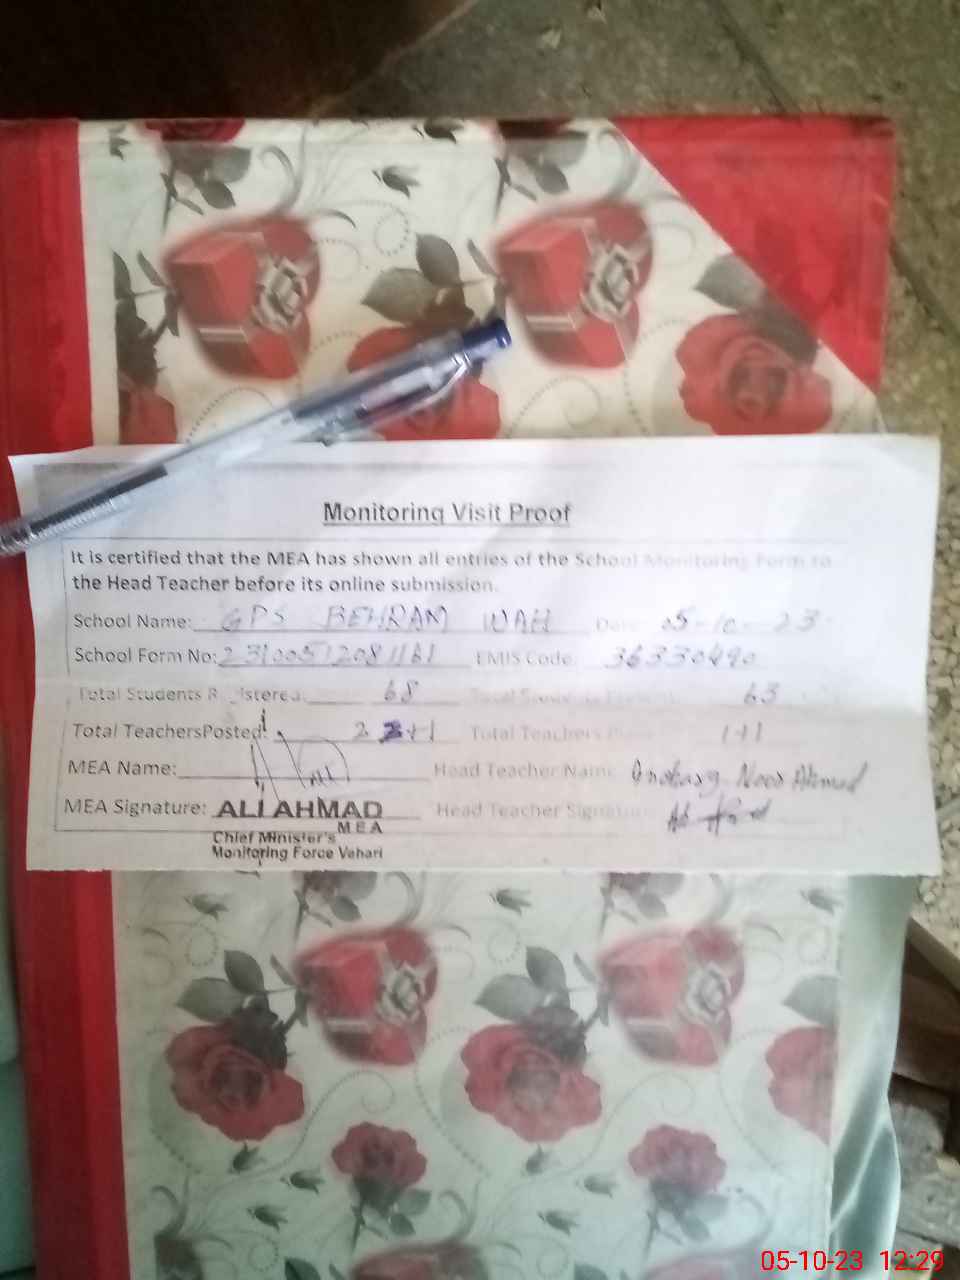 Monitoring Visit Proof
It is certified that the MEA has shown all entries of the School Monitoring Form to
the Head Teacher before its online submission.
School Name: GPS BEHRAM WAH Date: 05-10-23
School Form No: EMIS Code: 36330490
Total Students Registered: 68 Total Students Present: 63
Total TeachersPosted: 2 +1 Total Teachers 1+1
MEA Name: Head Teacher Name Noor Ahmad
MEA Signature: ALI AHMAD Head Teacher Signature
MEA
Chief Minister's
Monitoring Force Vehari
05-10-23 12:29